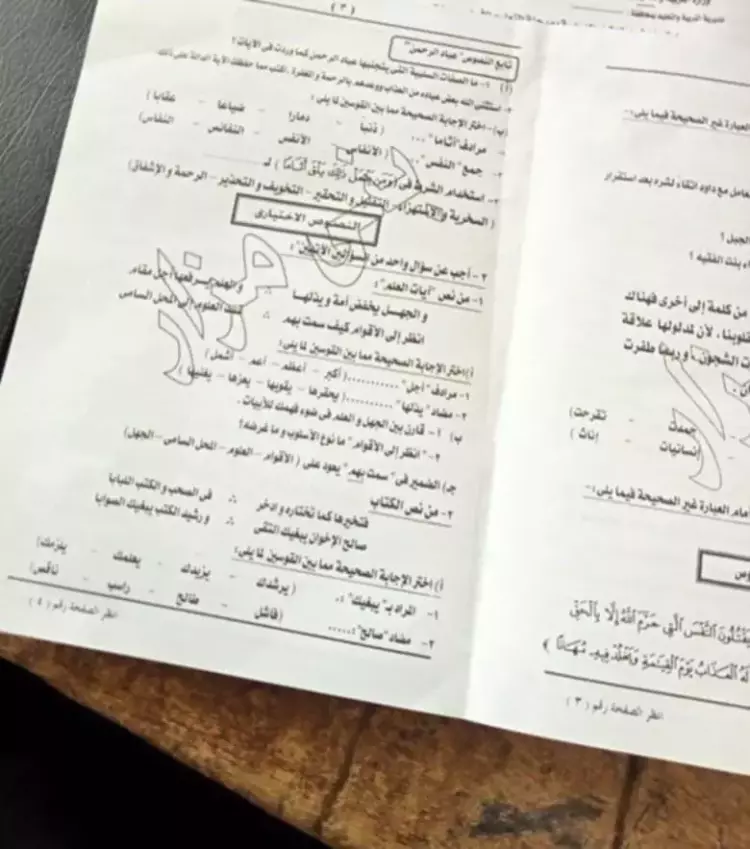 ( ٣ )
تابع النصوص "عباد الرحمن"
(أ) ١- ما الصفات السلبية التى يتجنبها عباد الرحمن كما وردت فى الآيات ؟
استثنى الله بعض عباده من العذاب ووعدهم بالرحمة و المغفرة . اكتب مما حفظت الآية الدالة على ذلك
(ب)- اختر الإجابة الصحيحة مما بين القوسين لما يلى :
- مرادف "أثاما" ... ( ذنبا - دمارا - ضياعا - عقابا )
- جمع "النفس" ... ( الأنفاس - الأنفس - النفائس - النفاس )
- استخدام الشرط فى ( وَمَن يَفْعَلْ ذَٰلِكَ يَلْقَ أَثَامًا ) لـ ........
( السخرية والاستهزاء - التقليل و التحقير - التخويف و التحذير - الرحمة و الإشفاق)
النصوص الاختيارى
٢- أجب عن سؤال واحد من السؤالين الآتيين :
١- من نص "آيات العلم" :
و الجهل يخفض أمة ويذلها ∴ و العلم يرفعها أجل مقام
انظر إلى الأقوام كيف سمت بهم ∴ تلك العلوم إلى المحل السامى
أ) اختر الإجابة الصحيحة مما بين القوسين لما يلى :
١- مرادف "أجل" .......... ( أكبر - أعظم - أعم - أشمل )
٢- مضاد "يذلها" .......... ( يحقرها - يقويها - يعزها - يغنيها )
ب) ١- قارن بين الجهل و العلم فى ضوء فهمك للأبيات .
٢- "انظر إلى الأقوام" ما نوع الأسلوب و ما غرضه ؟
جـ) الضمير فى "سمت بهم" يعود على ( الأقوام - العلوم - المحل السامى - الجهل)
٢- من نص الكتاب
فتخيرها كما تختاره و ادخر ∴ فى الصحب و الكتب اللبابا
صالح الإخوان يبغيك التقى ∴ و رشيد الكتب يبغيك الصوابا
أ) اختر الإجابة الصحيحة مما بين القوسين لما يلى :
١- المراد بـ "يبغيك" : . ( يرشدك - يزيدك - يعلمك - يلزمك)
٢- مضاد "صالح" : ..... (فاشل - طالح - راسب - ناقص)
انظر الصفحة رقم ( ٤ )
مديرية التربية والتعليم بمحافظة
العبارة غير الصحيحة فيما يلى :-
تعامل مع داود اتقاء لشره بعد استقرار
الجبل ؟
بنك الفقيه ؟
من كلمة إلى أخرى فهناك
قلوبنا ، لأن لمدلولها علاقة
الشجون . و ربما ظفرت
جمدت - تقرحت)
إنسانيات - إناث )
أمام العبارة غير الصحيحة فيما يلى :-
يَقْتُلُونَ النَّفْسَ الَّتِي حَرَّمَ اللَّهُ إِلَّا بِالْحَقِّ
لَهُ الْعَذَابُ يَوْمَ الْقِيَامَةِ وَيَخْلُدْ فِيهِ مُهَانًا ﴾
انظر الصفحة رقم ( ٣ )